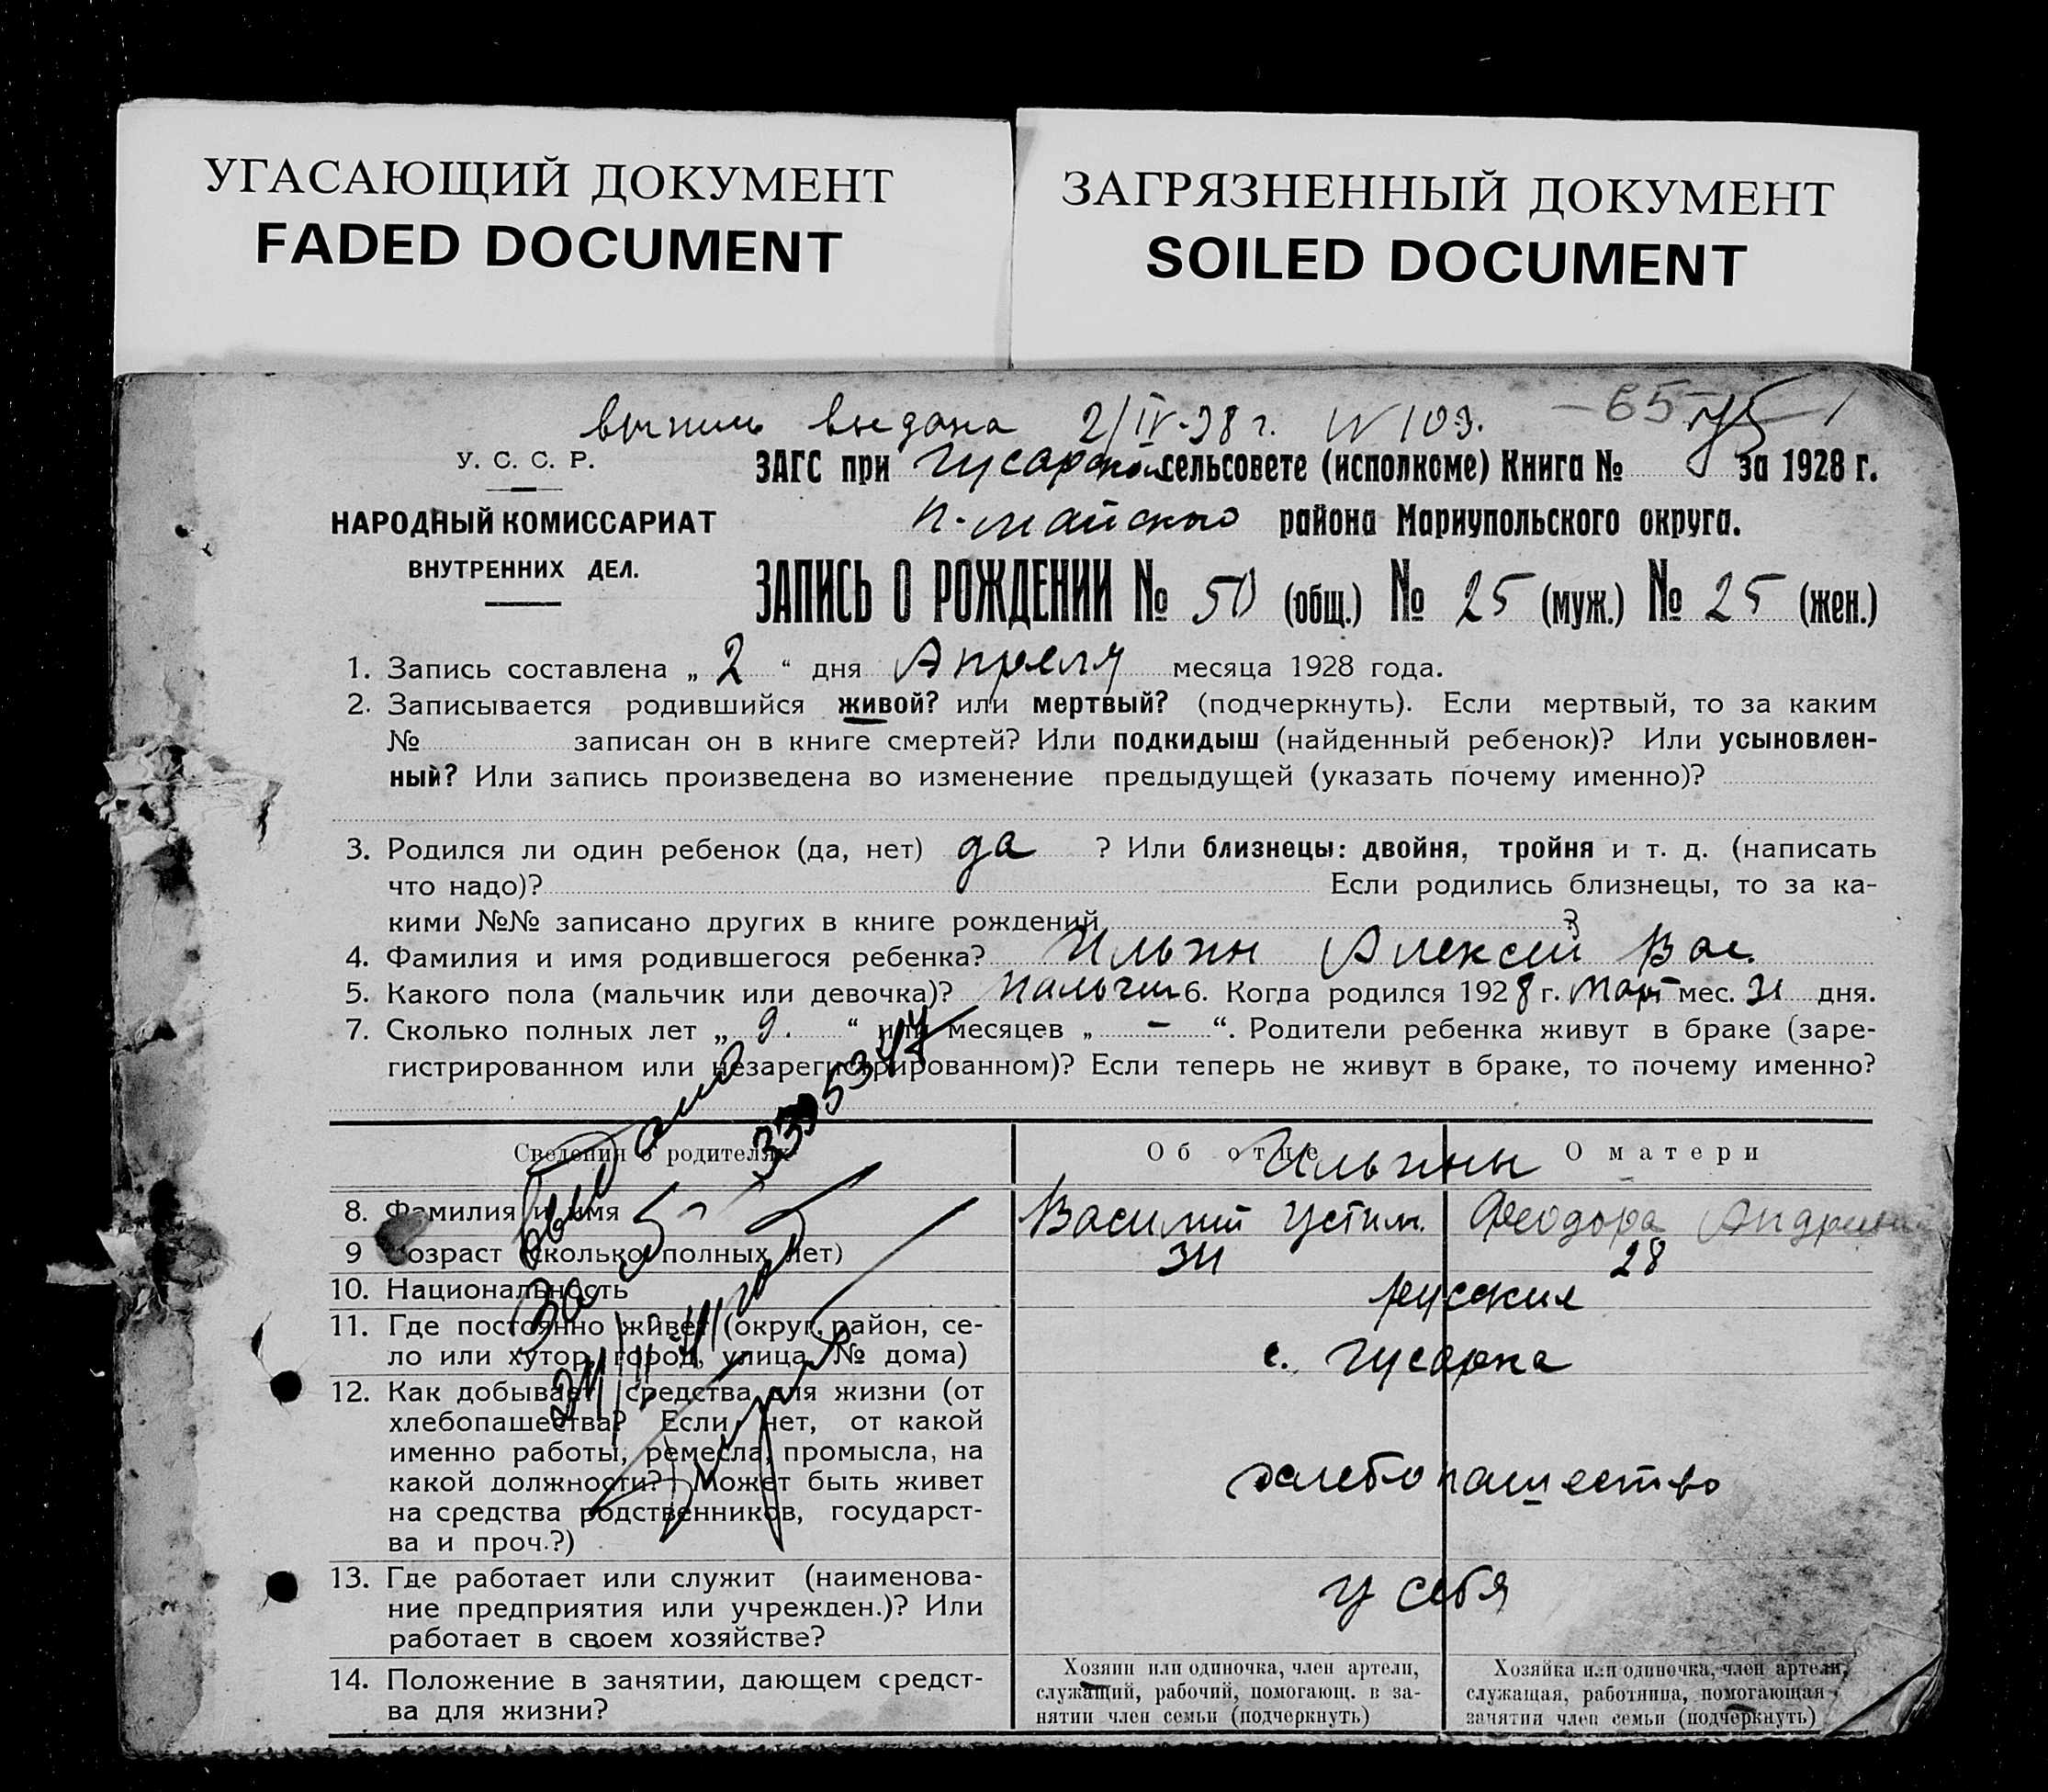 УГАСАЮЩИЙ ДОКУМЕНТ
FADED DOCUMENT
ЗАГРЯЗНЕННЫЙ ДОКУМЕНТ
SOILED DOCUMENT
выпись выдана 2/IV-28 г. N 103.
65
У. С. С. Р.
НАРОДНЫЙ КОМИССАРИАТ
ВНУТРЕННИХ ДЕЛ.
ЗАГС при Гусарском сельсовете (исполкоме) Книга № за 1928 г.
п-майского района Мариупольского округа.
ЗАПИСЬ О РОЖДЕНИИ № 50 (общ.) № 25 (муж.) № 25 (жен.)
1. Запись составлена „ 2 “ дня Апреля месяца 1928 года.
2. Записывается родившийся живой? или мертвый? (подчеркнуть). Если мертвый, то за каким
№ записан он в книге смертей? Или подкидыш (найденный ребенок)? Или усыновлен-
ный? Или запись произведена во изменение предыдущей (указать почему именно)?
3. Родился ли один ребенок (да, нет) да ? Или близнецы: двойня, тройня и т. д. (написать
что надо)? Если родились близнецы, то за ка-
кими №№ записано других в книге рождений ?
4. Фамилия и имя родившегося ребенка? Ильин Алексей Вас.
5. Какого пола (мальчик или девочка)? мальчик 6. Когда родился 1928 г. Март мес. 31 дня.
7. Сколько полных лет „ 9. “ или месяцев „ – “. Родители ребенка живут в браке (заре-
гистрированном или незарегистрированном)? Если теперь не живут в браке, то почему именно?
Сведения о родителях
Об отце
Ильины
О матери
8. Фамилия и имя
Василий Устим.
Феодора Андреевна
9 Возраст (сколько полных лет)
34
28
10. Национальность
русские
11. Где постоянно живет (округ, район, се-
ло или хутор, город, улица, № дома)
с. Гусарка
12. Как добывает средства для жизни (от
хлебопашества? Если нет, от какой
именно работы, ремесла, промысла, на
какой должности? Может быть живет
на средства родственников, государст-
ва и проч.?)
хлебопашество
13. Где работает или служит (наименова-
ние предприятия или учрежден.)? Или
работает в своем хозяйстве?
у себя
14. Положение в занятии, дающем средст-
ва для жизни?
Хозяин или одиночка, член артели,
служащий, рабочий, помогающ. в за-
нятии член семьи (подчеркнуть)
Хозяйка или одиночка, член артели,
служащая, работница, помогающая
занятии член семьи (подчеркнуть)
выдано
За